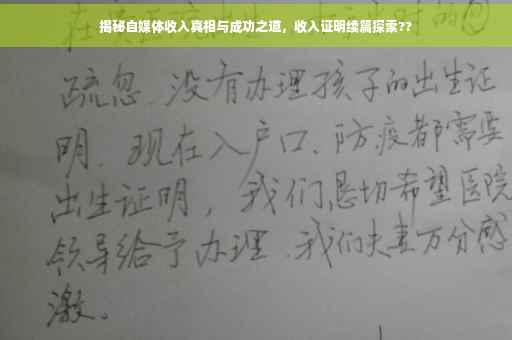 揭秘自媒体收入真相与成功之道，收入证明续篇探索??
疏忽、没有办理孩子的出生证
明、现在入户口、防疫都需要
出生证明，我们恳切希望医院
领导给予办理、我们夫妻万分感
激。